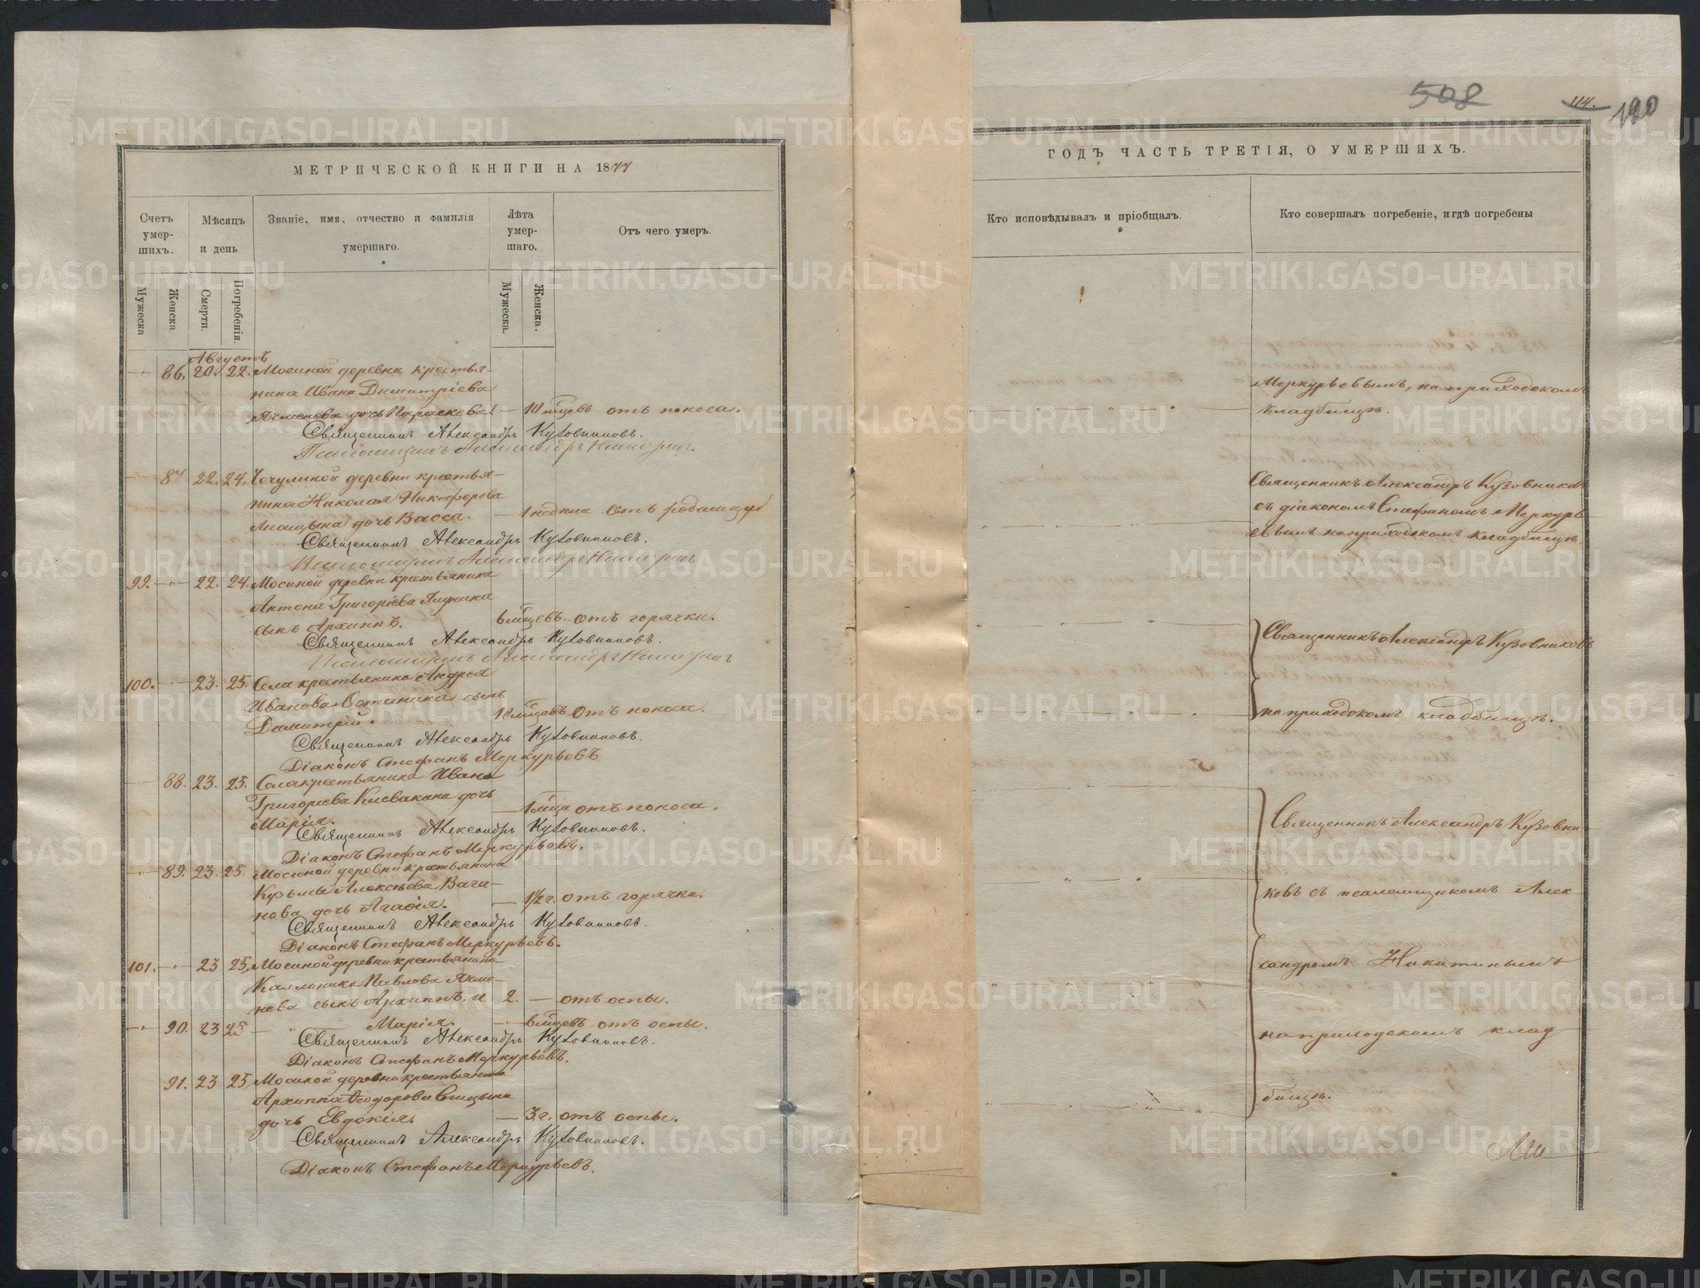 508
114.
190
МЕТРИЧЕСКОЙ КНИГИ НА 1877
ГОДЪ ЧАСТЬ ТРЕТІЯ, О УМЕРШИХЪ.
Счетъ умер-шихъ.
Мѣсяцъ и день
Званіе, имя, отчество и фамилія умершаго.
Лѣта умер-шаго.
Отъ чего умеръ.
Кто исповѣдывалъ и пріобщалъ.
Кто совершалъ погребеніе, и гдѣ погребены
Мужеска
Женска.
Смерти.
Погребенія
Мужеска.
Женска.
Августъ
86. 20. 22. Мосиной деревни крестья-
нина Ивана Димитріева
дочь Параскева — 10 мцевъ отъ поноса.
Священникъ Александръ Кузовниковъ.
Псаломщикъ Александръ Никитинъ
87 22. 24. деревни крестья-
нина Николая Никифорова
дочь Васса. — 1 недели отъ родимца
Священникъ Александръ Кузовниковъ.
Псаломщикъ Александръ Никитинъ
99. 22. 24. Мосиной деревни крестьянина
Антона Григорiева
сынъ Архиппъ. 6 мцевъ отъ горячки.
Священникъ Александръ Кузовниковъ.
Псаломщикъ Александръ Никитинъ
100. 23. 25. Села крестьянина Андрея
Иванова сынъ
Димитрій. отъ поноса.
Священникъ Александръ Кузовниковъ.
Діаконъ Стефанъ Меркурьевъ
88. 23. 25. Села крестьянина Ивана
Григорьева дочь
Марія. — 1 мца отъ поноса.
Священникъ Александръ Кузовниковъ.
Діаконъ Стефанъ Меркурьевъ.
89. 23. 25 Мосиной деревни крестьянина
Кузьмы Алексѣева Вага-
нова дочь Агафія. — 1½ г. отъ горячки.
Священникъ Александръ Кузовниковъ.
Діаконъ Стефанъ Меркурьевъ.
101. 23 25, Мосиной деревни крестьянина
Каллиника Павлова Яким-
ова сынъ Архиппъ. и 2. — отъ оспы.
90. 23 25 — Марія. — 6 мцевъ отъ оспы.
Священникъ Александръ Кузовниковъ.
Діаконъ Стефанъ Меркурьевъ.
91. 23 25 Мосиной деревни крестьянина
Архиппа Ѳеодорова
дочь Евдокія. — 3 г. отъ оспы.
Священникъ Александръ Кузовниковъ.
Діаконъ Стефанъ Меркурьевъ.
Меркурьевымъ, на приходскомъ
кладбищѣ.
Священникъ Александръ Кузовниковъ
съ діакономъ Стефаномъ Меркурь-
евымъ на приходскомъ кладбищѣ
Священникъ Александръ Кузовниковъ
на приходскомъ кладбищѣ.
Священникъ Александръ Кузовни-
ковъ съ псаломщикомъ Алек-
сандромъ Никитинымъ
на приходскомъ клад-
бищѣ.
METRIKI.GASO-URAL.RU